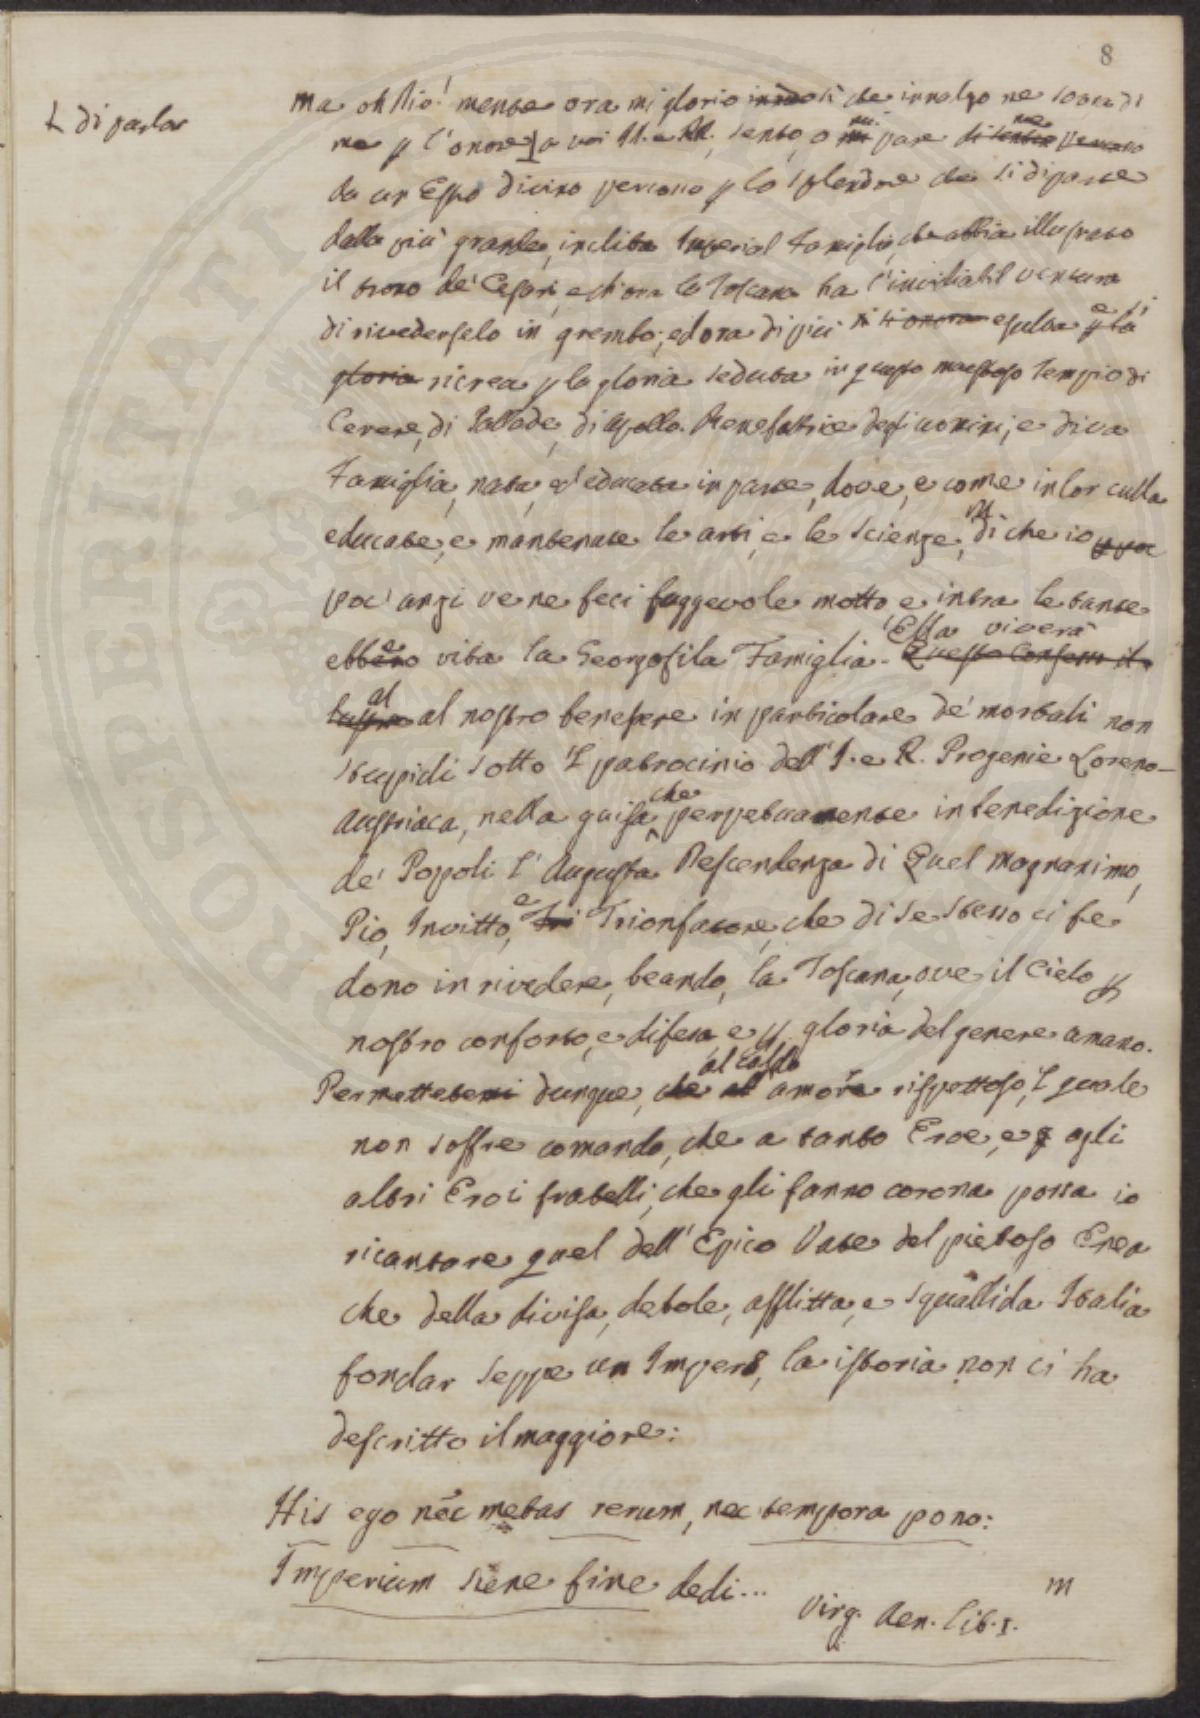 8
L di parlar
ma oh Dio! mentre ora mi glorio che innalzo me sopra di
me p l'onore a voi II. e RR. sento, o mi pare
da un Estro divino percosso p lo splendore che si diparte
dalla più grande, inclita Imperial Famiglia, che abbia illustrato
il trono de' Cesari, e ch'ora la Toscana ha l'invidiabil ventura
di rivederselo in grembo; ed ora di più esulta e si
gloria ricrea p la gloria seduta in questo maestoso Tempio di
Cerere, di Pallade, di Apollo. Benefattrice degli uomini, e diva
Famiglia, nata, ed educata in parte, dove, e come in lor culla
educate, e mantenute le arti, e le scienze, di che io
poc'anzi ve ne feci fuggevole motto e intra le tante
ebbe vita la Georgofila Famiglia. Ella viverà
Questo
al al nostro benessere in particolare de' mortali non
stupidi sotto 'l patrocinio dell'I. e R. Progenie Loreno-
Austriaca, nella guisa che perpetuamente in benedizione
de' Popoli l'Augusta Descendenza di Quel magnanimo,
Pio, Invitto, e Tri Trionfatore, che di se stesso ci fe
dono in rivedere, beando, la Toscana, ove il Cielo p
nostro conforto, e difesa, e p gloria del genere umano.
Permettetemi dunque, che al al caldo amore rispettoso, 'l quale
non soffre comando, che a tanto Eroe, e agli
altri Eroi fratelli, che gli fanno corona possa io
ricantare quel dell'Epico Vate del pietoso Enea
che della divisa, debole, afflitta, e squallida Italia
fondar seppe un Impero, la istoria non ci ha
descritto il maggiore:
His ego nec metas rerum, nec tempora pono:
Imperium siene fine dedi...
Virg. Aen. Lib. I.
m
PROSPERITATI